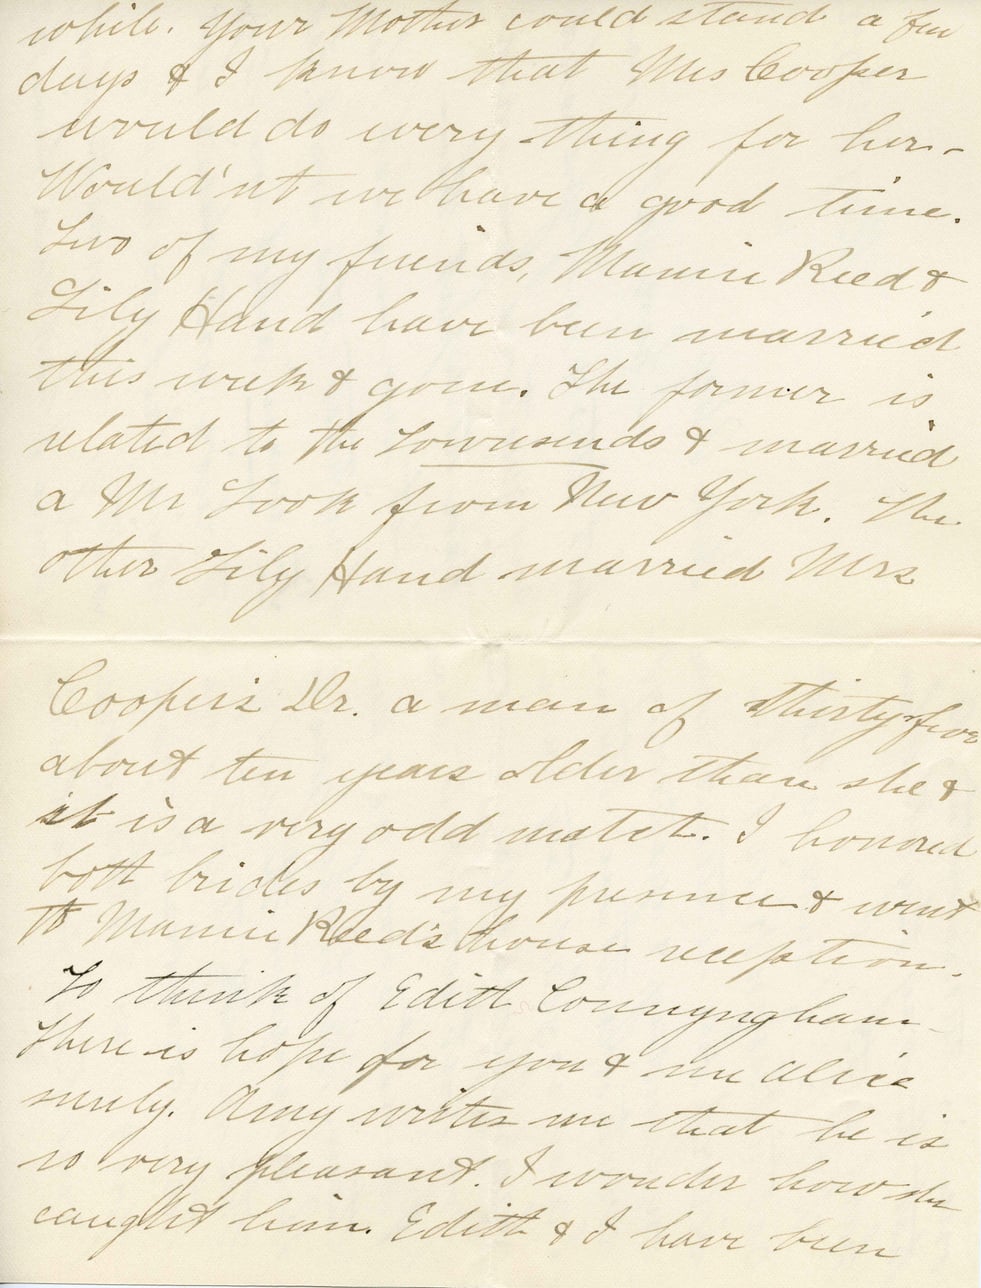 while. Your Mother could stand a few
days & I know that Mrs Cooper
would do every thing for her-
Would'nt we have a good time.
Two of my friends, Mamie Reed &
Lily Hand have been married
this week & gone. The former is
related to the Townsends & married
a Mr Look from New York. The
other Lily Hand married Mrs
Cooper's Dr. a man of thirty five
about ten years older than she &
it is a very odd match. I honored
both brides by my presence & went
to Mamie Reed's house reception.
To think of Edith Connyngham
There is hope for you & me Alice
surely. Amy writes me that he is
so very pleasant. I wonder how she
caught him. Edith & I have been